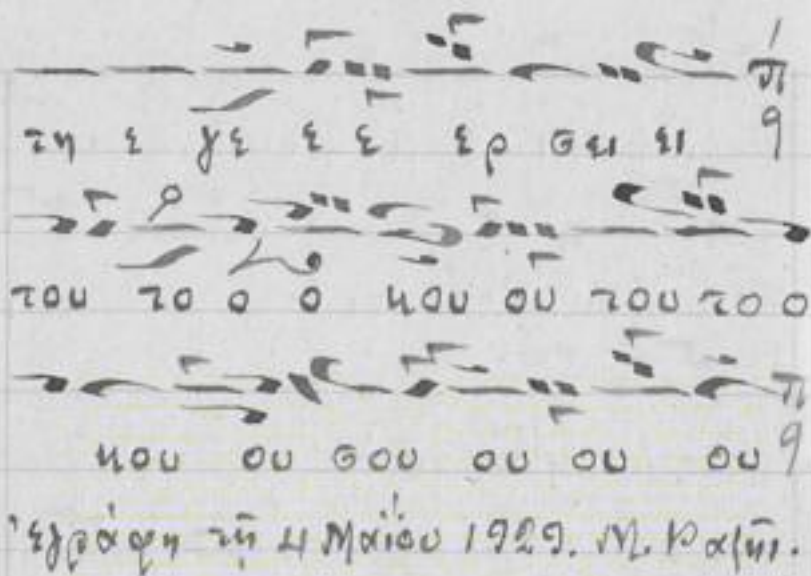 τη ε γε ε ε ερ σει ει
του το ο ο κου ου του το ο
κου ου σου ου ου ου
Ἐγράφη τῇ 4 Μαΐου 1929. Μ.